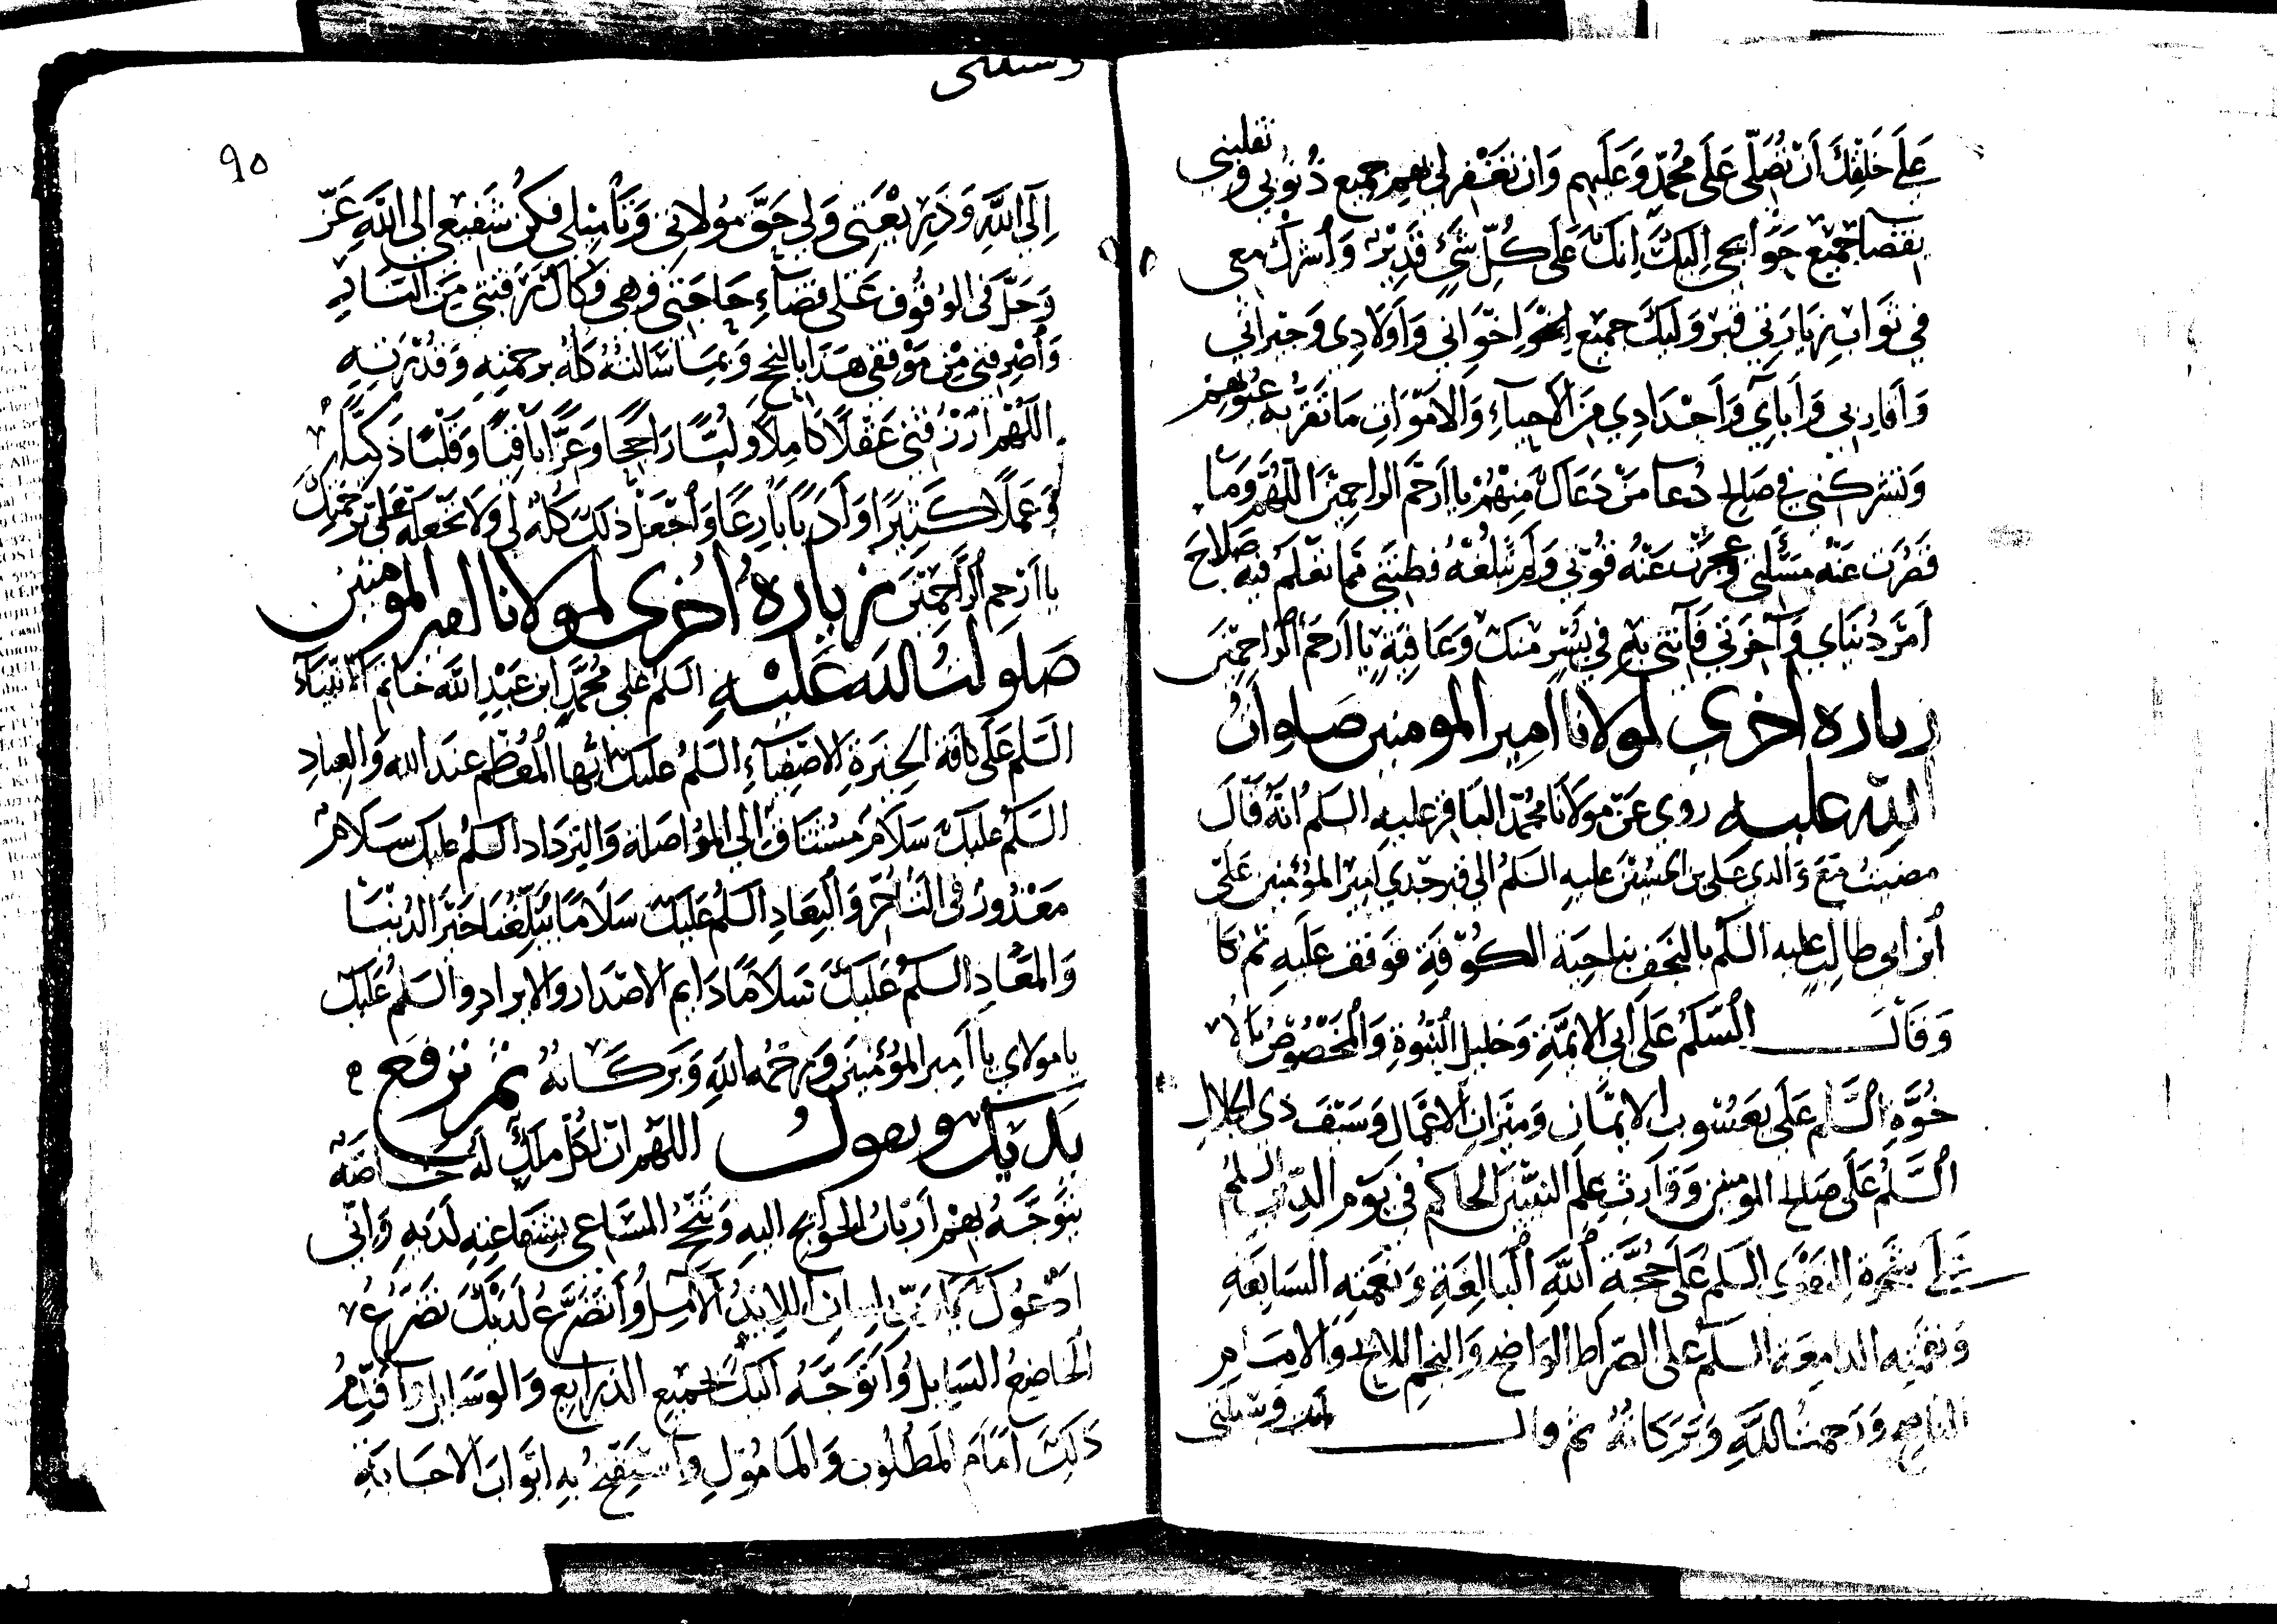 عَلَى خَلْقِكَ أَنْ تُصَلِّيَ عَلَى مُحَمَّدٍ وَعَلَيْهِم وَان تَغْفِر لي بهم جميع ذُنُوبي و تقلبني
بقضآ جَميعِ حَوَايجي اِلَيْكَ اِنَّكَ عَلَى كُلِّ شَيْءٍ قَدِيْرٌ وَأشرك معي
في ثَوَابِ زِيَارَتي قبر وَليكَ جميع اِخْوَاني وَاَوْلَادِي وَجيراني
وَأَقَارِبي وَأبآيِ وَأَجْدَادِي مِنَ الأَحيآءِ وَالأَمْوَاتِ مَا تَقَرُّ بِهِ عُيُونهم
وَتشركني في صَالح دُعآ مَنْ دَعَاكَ مِنْهُمْ يا اَرحَمَ الراحِمِيْنَ اللهُمَّ وَمَا
قَصُرَت عَنْه مَسْئلتي وعجَزَت عَنْهُ قُوَّتي وَلَم تَبْلُغْهُ فِطْنَتي مما تعْلَمُ فيهِ صَلَاحَ
أَمْرِ دُنيَاي وَآخِرَتي فَآتني بِهِ في يُسْرٍ مِنكَ وَعَافِيَةٍ يا أَرحَمَ الرَّاحِمِيْنَ
زياره أخري لمولانا امير المومنين صلوات
الله عليه روي عَن مَولَانَا مُحمّد البَاقر عليهِ السلم أنَّهُ قَالَ
مضَيتُ مَعَ وَالدي عَلي بن الحُسَيْن عليهِ السَّلمُ الي قبر جَدي اَمير المُؤْمنين عَلي
أبن ابي طالب عليه السلم بالنجف بناحِيَة الكُوْفَةِ فوَقف عَلَيهِ ثم بَكَا
وَقَالَ السَّلمُ عَلَى اَبي الايمَّةِ وَخليل النُبُوة وَالمَخْصُوْصِ بالا
خُوَّةِ السَّلم عَلَى يَعْسُوب الايمَانِ وَمِيْزَان الاعمال وَسَيْفِ ذي الجلال
السَّلمُ عَلَى صَالح المومنين وَوَارِث عِلم النبيين الحَاكم في يَوْم الدِّين السلمُ
عَلَى شجرة التقوى السلم عَلَى حُجَّة اللهِ البَالِغَةِ وَنعْمَتِهِ السَابِغَةِ
وَنقْمَتِه الدامِغَة السلم عَلَى الصِّرَاط الوَاضِح وَالنجم اللايح وَالامَامِ
الناصح وَرَحمتُ اللهِ وَبَرَكَاتُهُ ثم قال انت وسيلتي
وسيلتي
٩٥
اِلَى اللهِ وَذَرِيْعَتِي وَلي حَقُّ مُوَلاتي وَتَأميلي فكُن شَفِيعِي الي اللهِ عَزَّ
وَجَلَّ في الوُقُوف عَلى قضآءِ حَاجَتي وَهي فكَاكُ رَقَبَتي مِنَ النَّار
وَأصْرِفني مِنْ مَوْقفي هَذَا بالنجحِ وَبمَا سَالتُهُ كلهُ برحمَتِهِ وَقدْرَتِهِ
اللهُمَّ ارْزُقْني عَقلًا كَامِلًا وَلُبًّا رَاجِحًا وَعِزًّا بَاقيًا وَقَلْبًا ذَكيًّا
وَعَملًا كَثِيرًا وَأدَبًا بَارِعًا وَاْجْعَلْ ذَلِكَ كلَّهُ لي وَلَا تَجْعَلْهُ عَلَيَّ برحمتِكَ
يا أَرْحم الرَّاحمِيْنَ زياره أخرى لمولانا امير المومنين
صَلَوَاتُ الله عَلَيْهِ السلم على مُحَمَّدٍ ابن عَبْدِ الله خاتم الانبيآء
السَّلم عَلَى كافة الخيَرةِ الاصْفيآءِ السَلمُ عليك ايُّها المُعَظَّم عِندَ الله وَالعِبادِ
السَّلمُ عَليكَ سَلَامَ مُشتَاقٍ الي المُوَاصَلة وَالتِردَاد السلمُ عليك سَلَامَ
مَعْذُورٍ في التَّأَخُّر وَالبِعَادِ السَّلمُ عَلَيكَ سَلَامًا يُبَلِّغُنَا خَيْرَ الدُنيَا
وَالمَعَادِ السلمُ عَلَيكَ سَلَامًا دَايم الاصْدَار وَالايراد وَالسلم عَلَيكَ
يا مولاي يا اَميرَ المُؤْمنِينَ وَرَحْمةُ اللهِ وَبَرَكَاتُهُ ثم ترفع
يَدَيكَ وتقول اللهُمَّ ان لكُلِّ مَلكٍ لَهُ خَاصَّه
يَتَوَجَّهُ بهمْ أَربَابُ الحَوَايج اليهِ وَتَنْجَحُ المَسَاعي بشفَاعتِهِ لَدَيهِ وَاني
أدْعُوكَ اللايذُ الآمِلُ وَأتضَرَّعُ لَدَيكَ تَضَرُّعُ
الخاضِعُ السَايل وَأتوَجَّهُ اليكَ بجميع الذرايع وَالوَسَايل وَأقدِّمُ
ذَلِكَ اَمَامَ المَطلُوب وَالمَامُوْلِ وَأسْتَفتِحُ بِهِ ابْوَابَ الاجَابَةِ